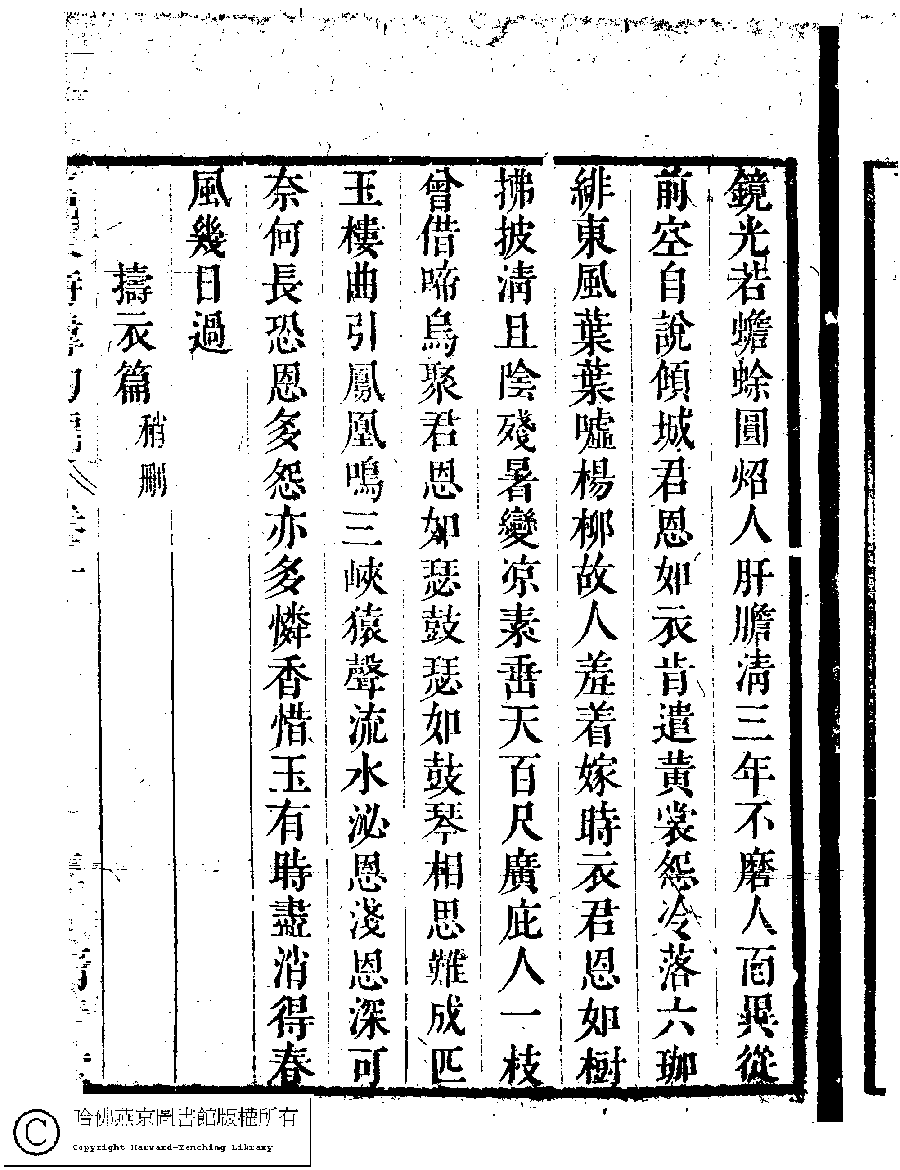 鏡光若蟾蜍圓炤人肝膽清三年不磨人面異從
前空自說傾城君恩如衣肯遣黄裳怨冷落六珈
緋東風葉葉噓楊柳故人羞着嫁時衣君恩如樹
拂披清且陰殘暑變凉素垂天百尺廣庇人一枝
曾借啼烏聚君恩如瑟鼓瑟如鼓琴相思難成匹
玉樓曲引鳳凰鳴三峽猿聲流水泌恩淺恩深可
奈何長恐恩多怨亦多憐香惜玉有時盡消得春
風幾日過
擣衣篇 稍刪
哈佛燕京圖書館版權所有
Copyright Harvard-Yenching Library